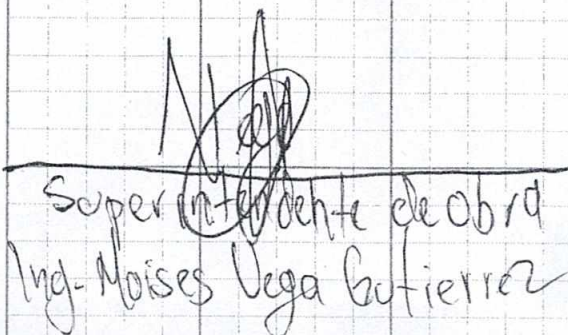 Superintendente de obra
Ing. Moises Vega Gutierrez